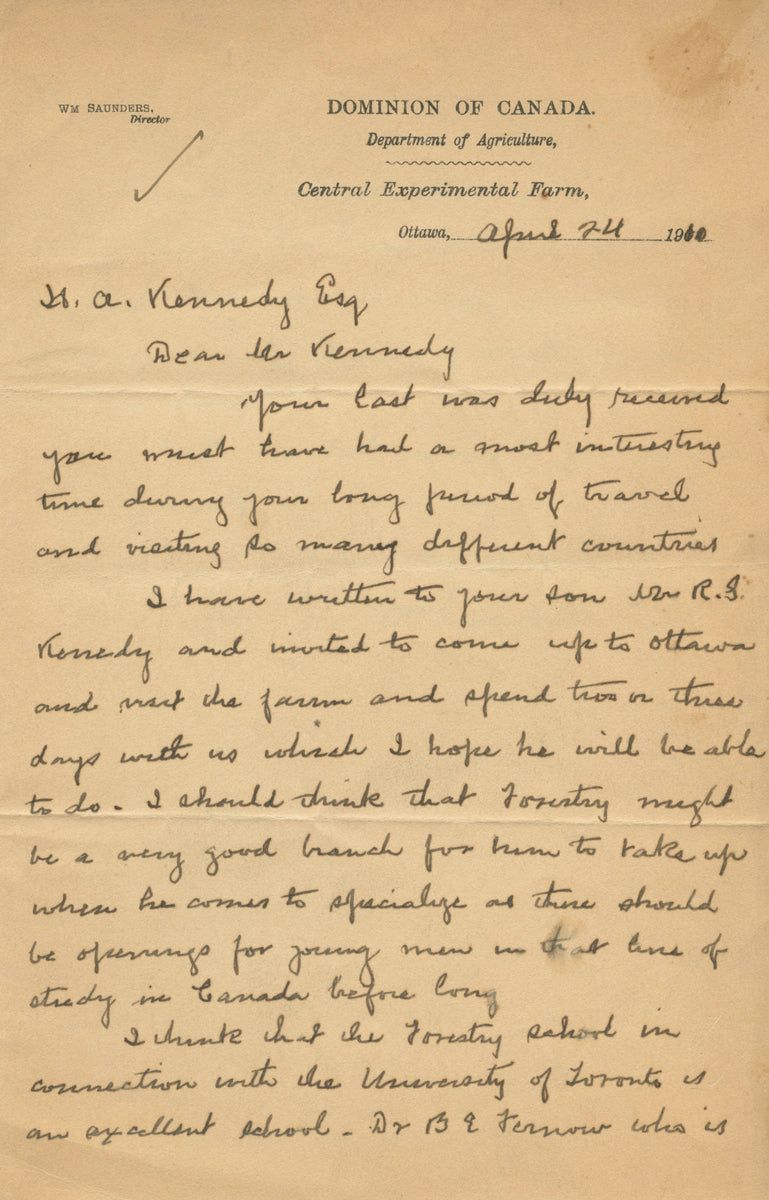 WM SAUNDERS,
Director
DOMINION OF CANADA.
Department of Agriculture,
Central Experimental Farm,
Ottawa, April 24 1910
H. A. Kennedy Esq
Dear Mr Kennedy
Your last was duly received
you must have had a most interesting
time during your long period of travel
and visiting so many different countries
I have written to your son Mr R. J.
Kennedy and invited to come up to Ottawa
and visit the farm and spend two or three
days with us which I hope he will be able
to do. I should think that Forestry might
be a very good branch for him to take up
when he comes to specialize as there should
be openings for young men in that line of
study in Canada before long
I think that the Forestry school in
connection with the University of Toronto is
an excellent school. Dr B E Fernow who is